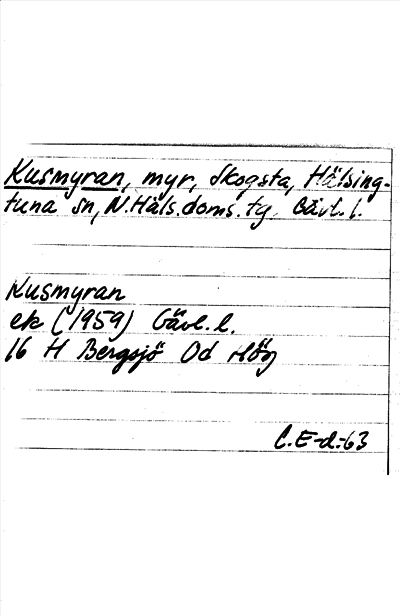 Kusmyran, myr, Skogsta, Hälsing-
tuna sn, N.Häls.doms.tg. Gävl.l.
Kusmyran
ek (1959) Gävl.l.
16 H Bergsjö Od Hög
C.E-d.-63